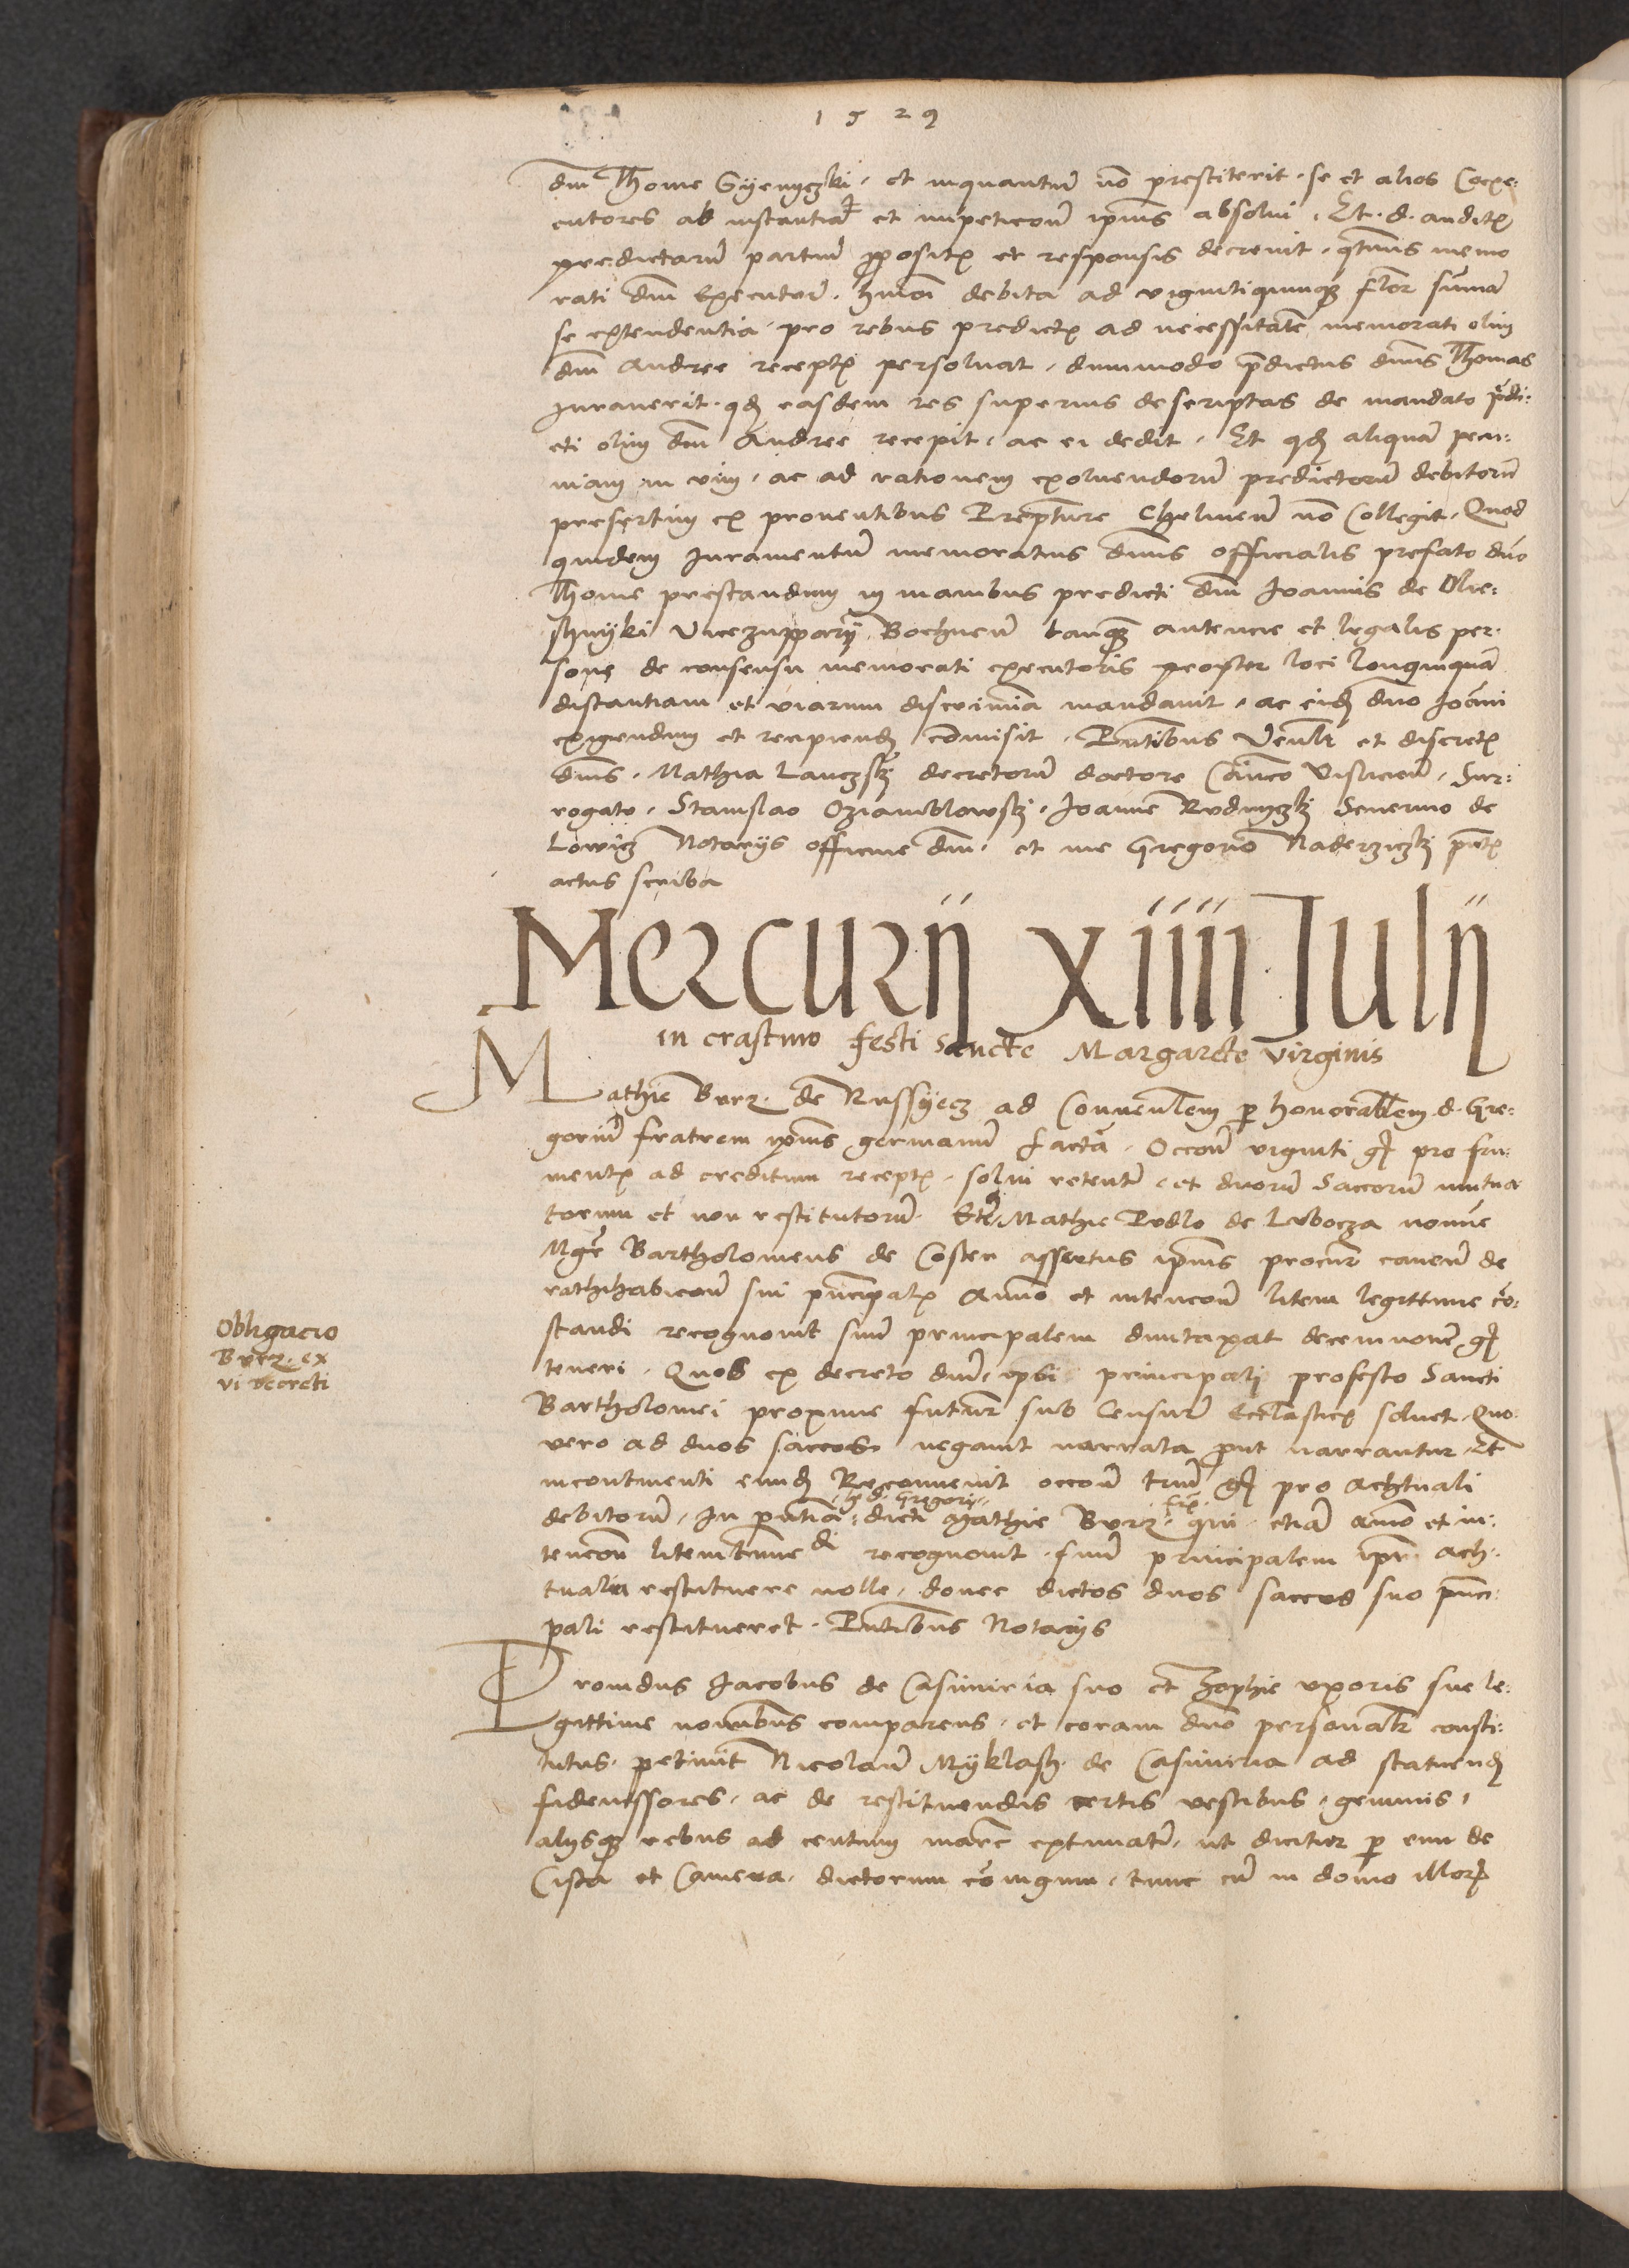 1529
dni Thome Gyenyczki, et inquantum no prestiterit. se et alios Coexe:
cutores ab instantia et impeticone ipius absolui. Et. d. auditis
predictarum partium propositis et responsis decreuit. qtenus memo
rati dni Executores. hmoi debita ad vigintiquinque flor suma
se extendentia. pro rebus predictis ad necessitate memorati olim
dni Andree receptis persoluat. dummodo predictus dnus Thomas
Iurauerit. qd easdem res superius descriptas de mandato predi:
cti olim dni Andree recepit. ac ei dedit. Et qd aliqua pecu:
niam in vim. ac ad rationem exoluendorum predictorum debitorum
presertim ex prouentibus Prepture Chelmen no Collegit. Quod
quidem Iuramentum memoratus dnus officialis prefato dno
Thome prestandum in manibus predicti dni Ioannis de Olie:
shnyki Vicezupparij Bochnen tanquam autentice et legalis per:
sone de consensu memorati executoris propter loci longinqua
distantiam et viarum discrimia mandauit. ac eidem dno Ioanni
exigendum et recipiendum comisit. Pntibus Venlr et discretis
dnis. Mathia Lanczski decretorum doctore Canco Vislicien. Sur:
rogato. Stanislao Oziamblowski. Ioanne Rudnyczki Seuerino de
Lowicz Notarijs officine dni. et me Gregorio Naderziczki pntis
actus scriba
Mercurij xiiii Julij
in crastino festi sancte Margarete virginis
Mathie Burz. de Russyecz ad Conuentem per honorabilem d. Gre:
gorium fratrem ipius germanum facta. Occone viginti gr pro fru:
mentis ad creditum receptis. solui retentis. et duorum Saccorum mutua
torum et non restitutorum. Ex Mathie Podlo de Lubocza nomine
Mgr Bartholomeus de Costen assertus ipius procur cauens de
rathihabicone sui pncipalis Animo et intencone litem legittime co:
standi recognouit suum principalem duntaxat decemnouem gr
teneri. Quos ex decreto dni. ipsi principali profesto Sancti
Bartholomei proxime futuri sub Censuris Ecclasticis soluet. Quo
vero ad duos saccos. negauit narrata prout narrantur. Et
incontinenti eundem Reconuenit occone trium gr pro achtuali
debitorum. In pntia hd. Gregorij dicti Mathie Burz. fris. qui etiam animo et in:
tencon litem contestandi recognouit. suum principalem ipm ach:
tualia restituere nolle. donec dictos duos saccos suo pnci:
pali restitueret. Pntibus Notarijs
Obligacio
Burz. ex
vi decreti
Prouidus Iacobus de Casimiria suo et Zophie vxoris sue le:
gittime nominibus comparens. et coram dno personalr consti:
tutus. petiuit Nicolaum Myklash. de Casimiria ad statuendum
fideiussores. ac de restituendis certis vestibus. gemmis.
alijsque rebus ad centum marc extimatis. ut dicitur per eum de
Cista et Camera. dictorum coniugum. tunc cum in domo illorum